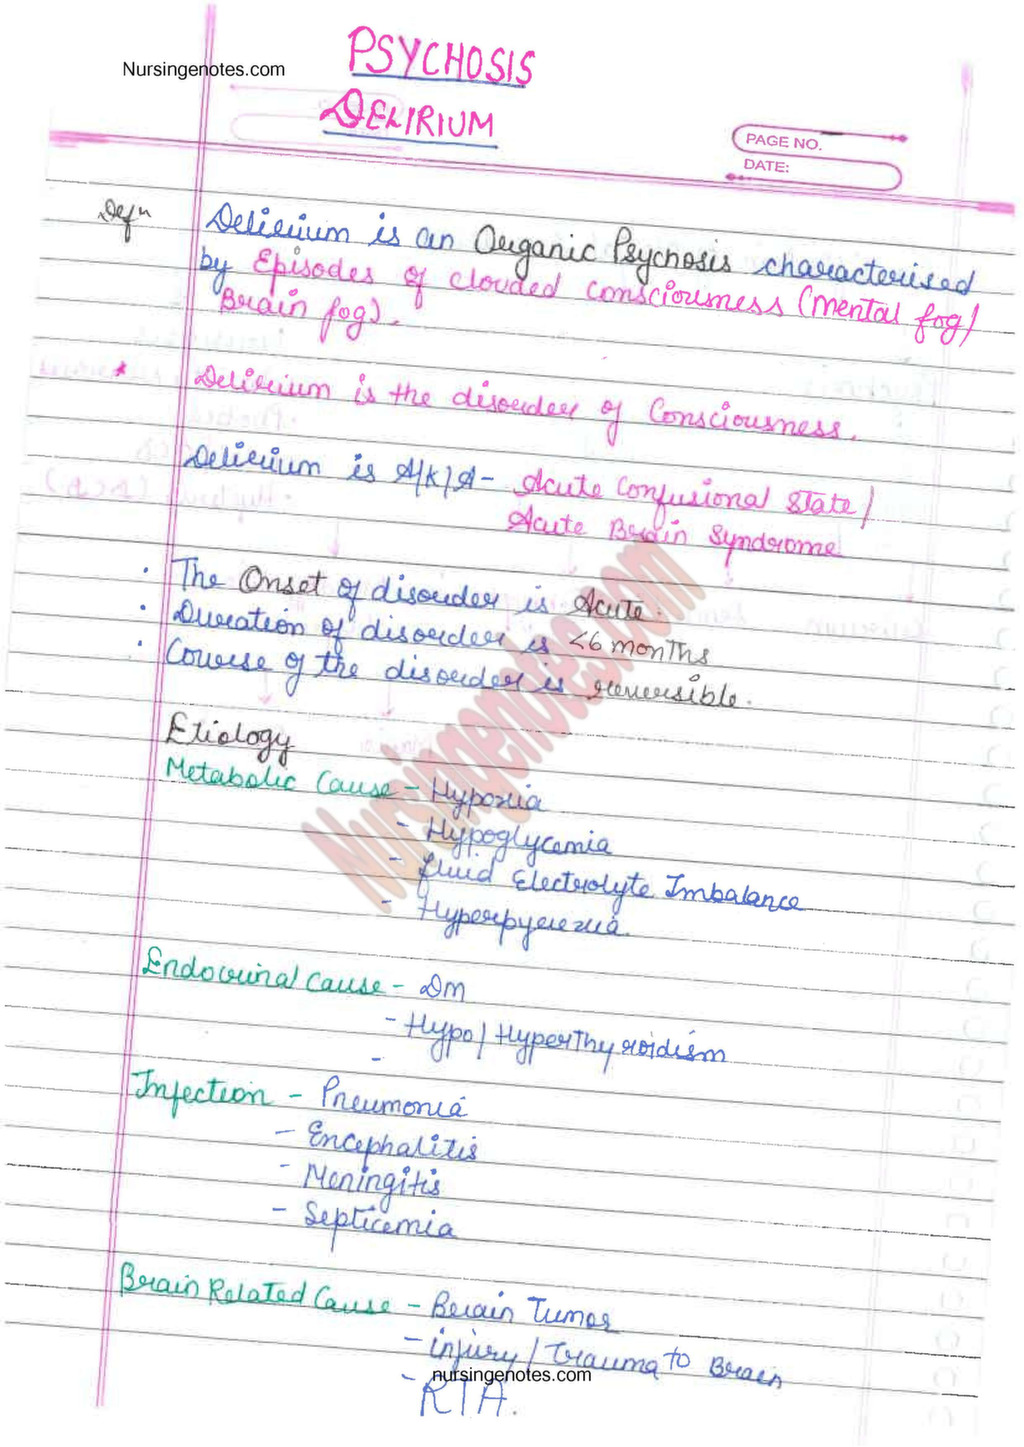 PSYCHOSIS
Nursingenotes.com
DELIRIUM
PAGE NO.
DATE:
Defn Delirium is an Organic Psychosis characterised
by Episodes of clouded consciousness (mental fog/
Brain fog).
* Delirium is the disorder of Consciousness.
Delirium is A/K/A - Acute Confusional State/
Acute Brain Syndrome
. The Onset of disorder is Acute.
. Duration of disorder is <6 months
. Course of the disorder is reversible.
Etiology
Metabolic Cause - Hypoxia
- Hypoglycemia
- fluid Electrolyte Imbalance
- Hyperpyrexia.
Endocrinal Cause - DM
- Hypo/Hyperthyroidism
-
Infection - Pneumonia
- Encephalitis
- Meningitis
- Septicemia
Brain Related Cause - Brain Tumor
- injury/Trauma to Brain
- RTA.
nursingenotes.com
Nursingenotes.com